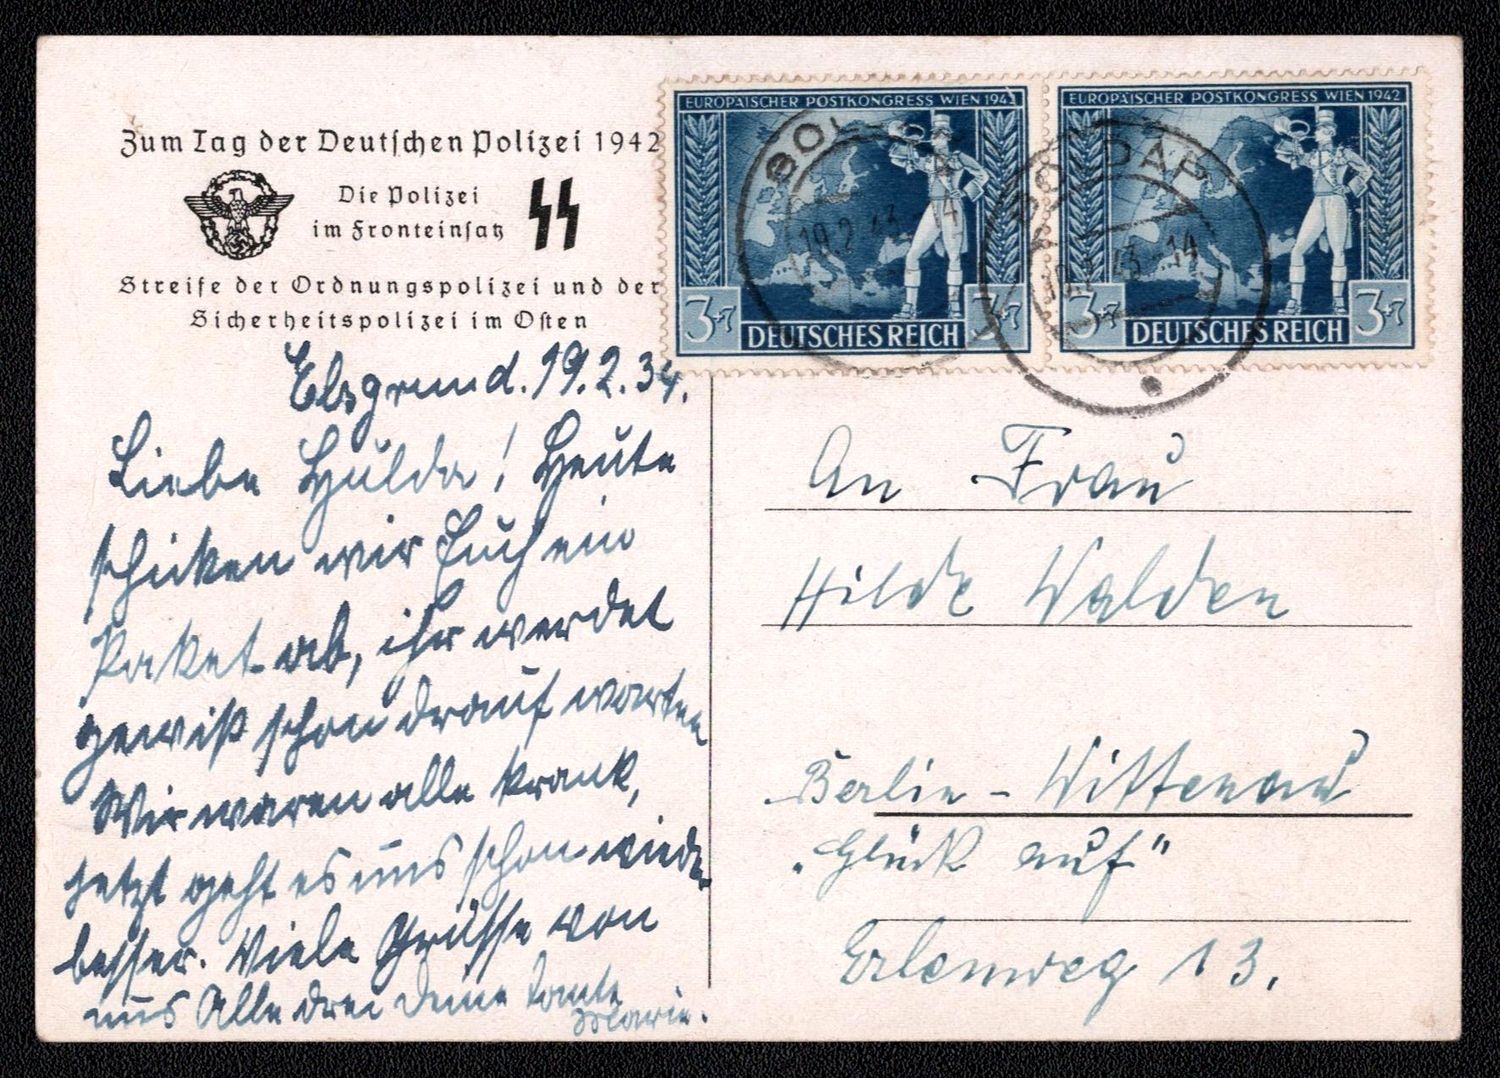 Zum Tag der Deutschen Polizei 1942
Die Polizei
im Fronteinsatz
Streife der Ordnungspolizei und der
Sicherheitspolizei im Osten
EUROPÄISCHER POSTKONGRESS WIEN 1942
3+7 DEUTSCHES REICH 3+7
EUROPÄISCHER POSTKONGRESS WIEN 1942
3+7 DEUTSCHES REICH 3+7
GOLDAP
19.2.43.-14
GOLDAP
19.2.43.-14
Elsgrund. 19.2.34.
Liebe Hulda! Heute
schicken wir Euch ein
Paket ab, ihr werdet
gewiß schon drauf warten
Wir waren alle krank,
jetzt geht es uns schon wieder
besser. Viele Grüsse von
uns Alle drei deine Tante
Marie.
An Frau
Hilde Walden
Berlin-Wittenau
"Glück auf"
Erlenweg 13.